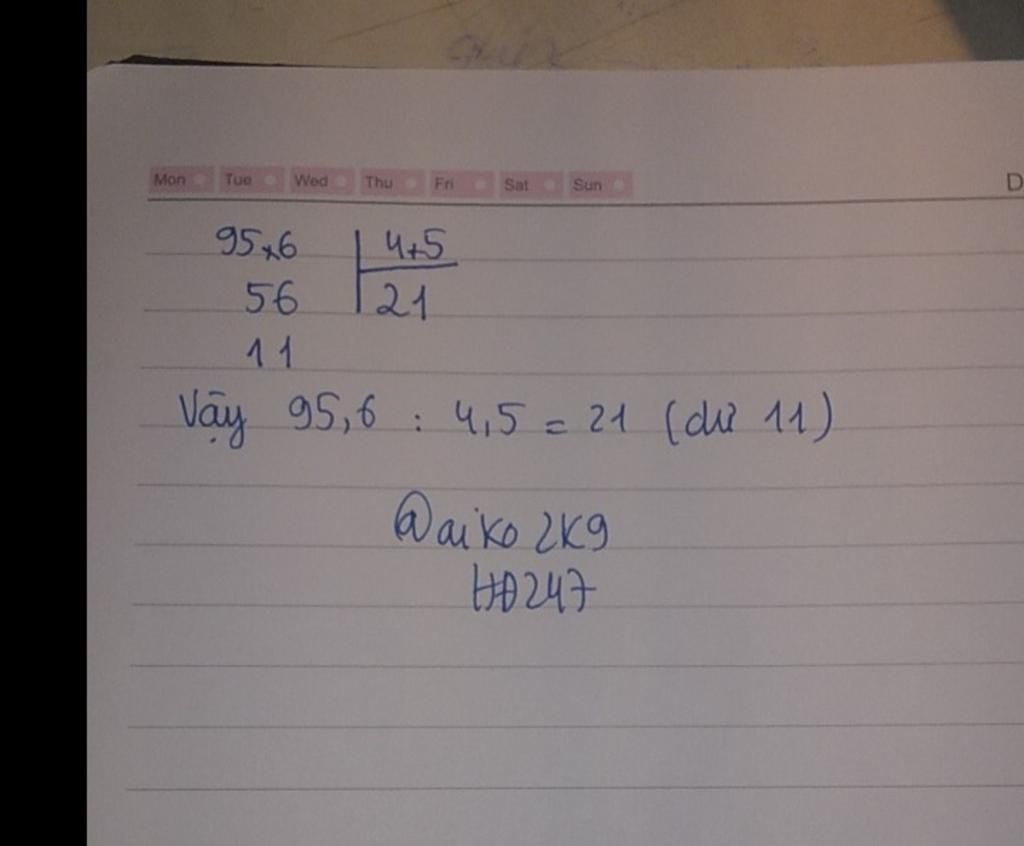 Mon Tue Wed Thu Fri Sat Sun D
95,6 4,5
56 21
11
Vậy 95,6 : 4,5 = 21 (dư 11)
@aiko 2K9
HĐ247